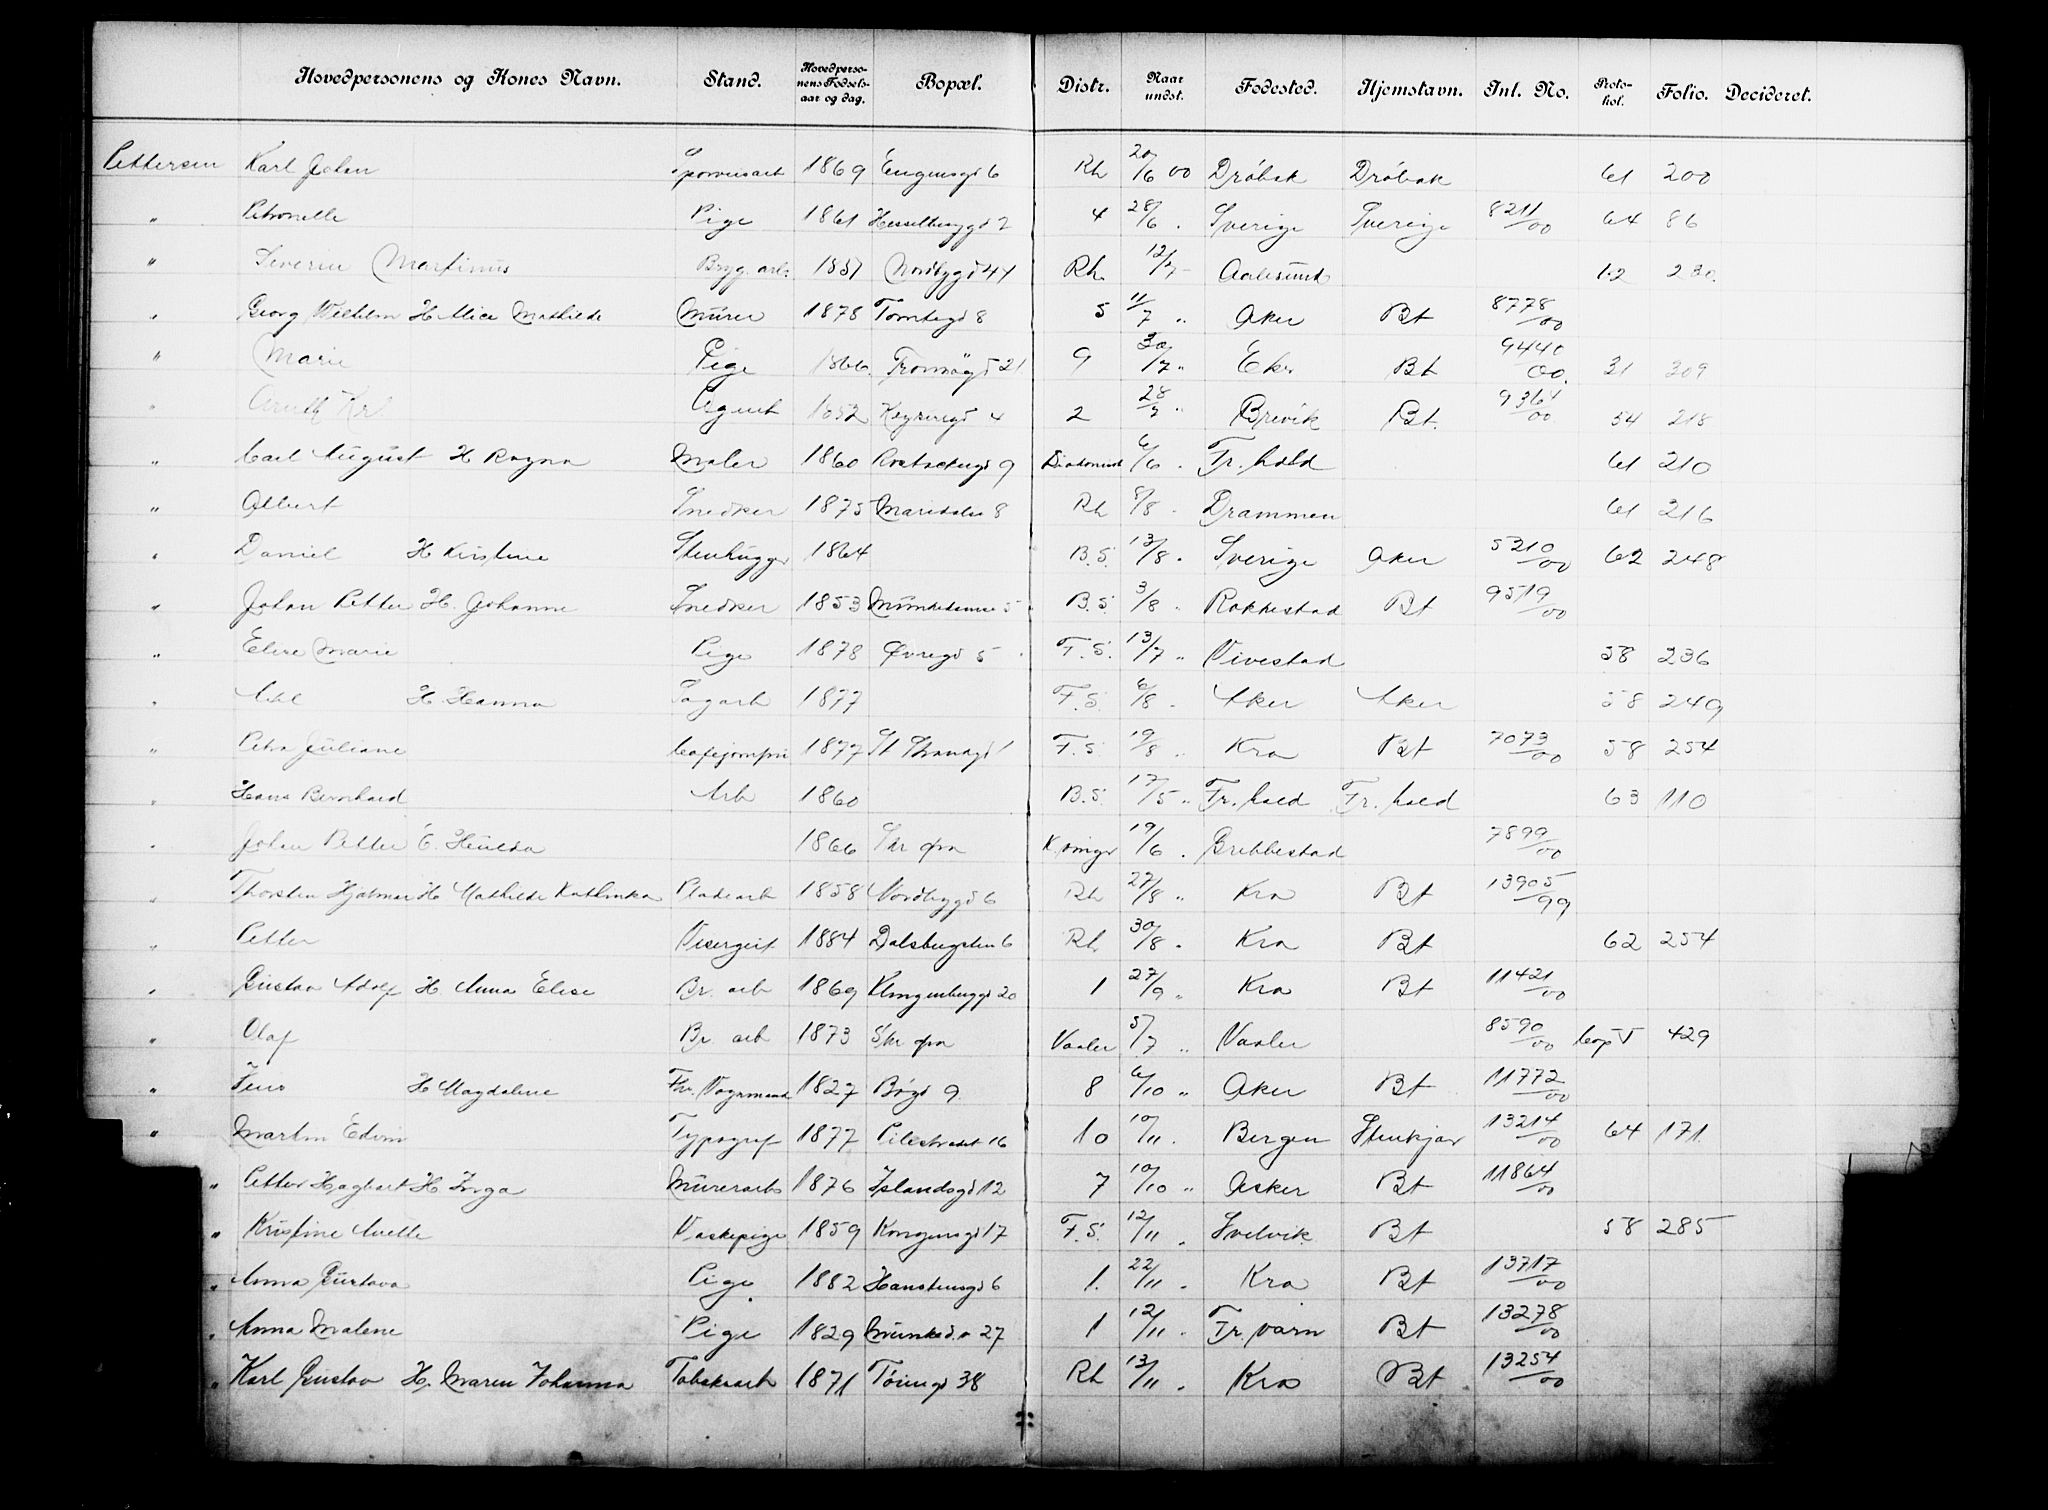 Hovedpersonens og Kones Navn. Stand. Hovedpersonens Fødselsaar og dag. Bopæl. Distr. Naar undst. Fødested. Hjemstavn. Inl. No. Protokol. Folio. Decideret.
Pettersen Karl Johan Sporveisarb 1869 Eugensgd 6 Rh 20/6 00 Drøbak Drøbak 61 200
" Petronelle Pige 1861 Hesselbergsgd 7 4 28/6 " Sverige Sverige 8211/00 64 86
" Severin Martinus Bryg. arb. 1857 Nordbygd 44 Rh. 12/7 Aalesund 62 230
" Georg Wilhelm H. Alice Mathilde Murer 1878 Tomtegd 8 5 11/7 " Aker Bt 8778/00
" Marie Pige 1866 Tromsøgd 21 9 30/7 " Eker Bt 9440/00 31 309
" Kr Agent 1852 Keysersgd 4 2 28/7 " Brevik Bt. 9364/00 54 218
" Carl August H Ragna Maler 1860 9 6/6 " Fr.hald 61 210
" Albert Snedker 1875 Maridalsv 8 Rh 8/8 " Drammen 61 216
" Daniel H Kirstine Stenhugger 1864 B.S. 13/8 " Sverige Aker 5210/00 62 248
" Johan Petter H. Johanne Snedker 1853 Munkedamsv 5 B.S. 3/8 " Rakkestad Bt 9519/00
" Elise Marie Pige 1878 Øvregd 5 F.S. 13/7 " Vivestad 58 236
" Axel H. Hanna Sagarb 1877 F.S. 6/8 " Aker Aker 58 249
" Petra Juliane Cafejomfru 1877 St Strandgd 1 F.S. 19/8 " Kra Bt 7073/00 58 254
" Hans Bernhard Arb 1860 B.S. 17/5 " Fr.hald Fr.hald 63 110
" Johan Petter E. Hulda 1866 Skr fra K.vinger 19/6 " Brekkestad 7899/00
" Thorsten Hjalmar H Mathilde Kathinka Pladearb 1858 Nordbygd 6 Rh 27/8 " Kra Bt 13905/99
" Petter Visergut 1884 Dalsbergstien 6 Rh. 30/8 " Kra Bt 62 254
" Gustav Adolf H Anna Elise Br. arb 1869 Klingenberggd 20 1 27/9 " Kra Bt 11421/00
" Olaf Br. arb 1873 Skr fra Vaaler 5/7 " Vaaler 8590/00 Cop V 429
" Jens H Magdalene Fhv. Vognmand 1827 Bøgd 9 8 6/10 " Aker Bt 11772/00
" Martin Edvin Typograf 1877 Pilestrædet 16 10 10/11 " Bergen Stenkjær 13214/00 64 171
" Petter Hagbart H Inga Murerarb 1876 Islandsgd 12 7 10/10 " Asker Bt 11864/00
" Kristine Anette Vaskepige 1859 Kongensgd 17 F.S. 12/11 " Svelvik Bt 58 285
" Anna Gustava Pige 1882 Hanstensgd 6 1. 22/11 " Kra Bt 13717/00
" Anna Malene Pige 1829 Munked.v 27 1 12/11 " Fr.værn Bt 13278/00
" Karl Gustav H. Maren Johanna Tobaksarb 1871 Tøiengd 38 Rh 13/11 " Kra Bt 13254/00